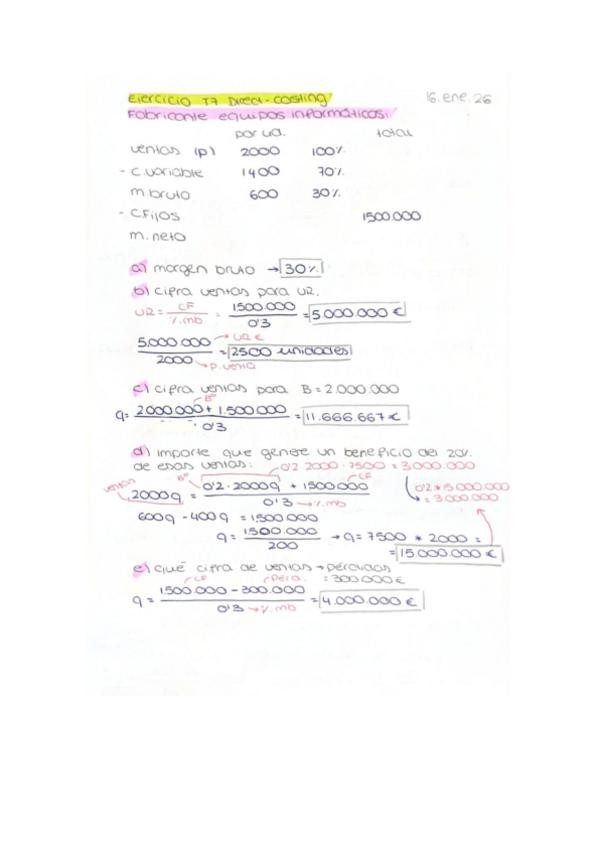 Ejercicio T7 Direct-costing 16.ene.26
Fabricante equipos informáticos:
por ud. total
ventas (p) 2000 100%
- C.variable 1400 70%
m.bruto 600 30%
- C.Fijos 1500.000
m.neto
a) margen bruto → 30%
b) cifra ventas para UR.
UR = CF / %.mb = 1500.000 / 0'3 = 5.000.000 €
5.000.000 → UR € / 2000 → p.venta = 2500 unidades
c) cifra ventas para B = 2.000.000
q = 2000.000 + 1.500.000 / 0'3 = 11.666.667 €
Bº
d) importe que genere un beneficio del 20%
de esas ventas: 0'2 · 2000 · 7500 = 3.000.000
ventas Bº CF
2000q = 0'2 · 2000q + 1500.000 / 0'3 → %.mb
0'2 * 15.000.000 = 3.000.000
600q - 400q = 1,500.000
q = 1500.000 / 200 → q = 7500 * 2000 =
= 15.000.000 €
e) qué cifra de ventas → pérdidas
= 300.000 €
CF pérd.
q = 1.500.000 - 300.000 / 0'3 → %.mb = 4.000.000 €